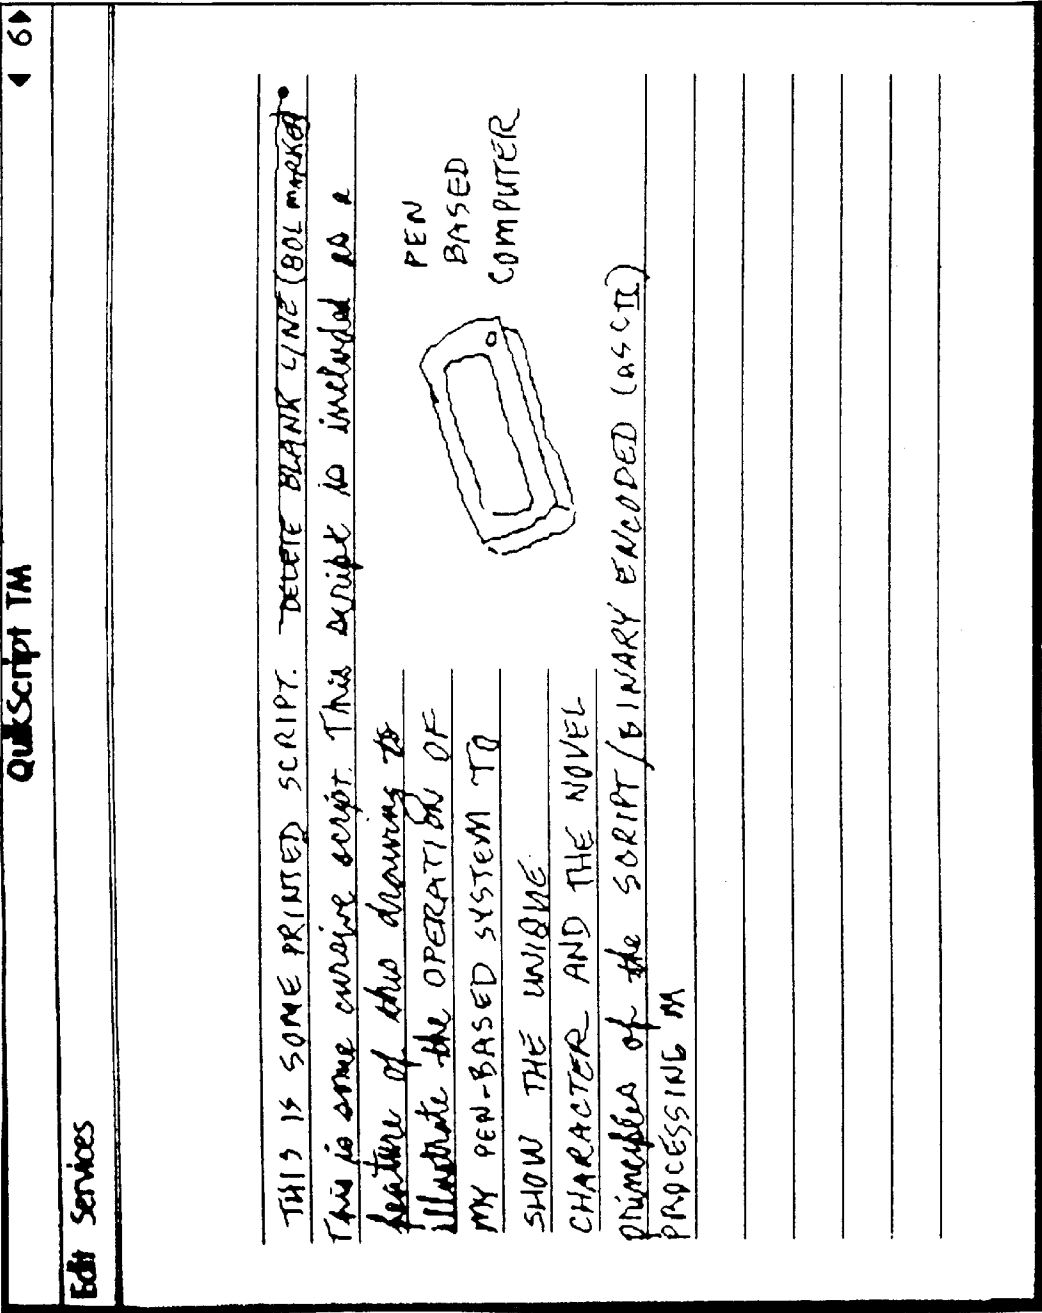 QuikScript TM
◀ 6 ▶
Edit Services
THIS IS SOME PRINTED SCRIPT. DELETE BLANK LINE (BOL MARKER)
This is some cursive script. This script is included as a
feature of this drawing to
illustrate the OPERATION OF
MY PEN-BASED SYSTEM TO
SHOW THE UNIQUE
CHARACTER AND THE NOVEL
PEN
BASED
COMPUTER
principles of the SCRIPT/BINARY ENCODED (ASCII)
PROCESSING